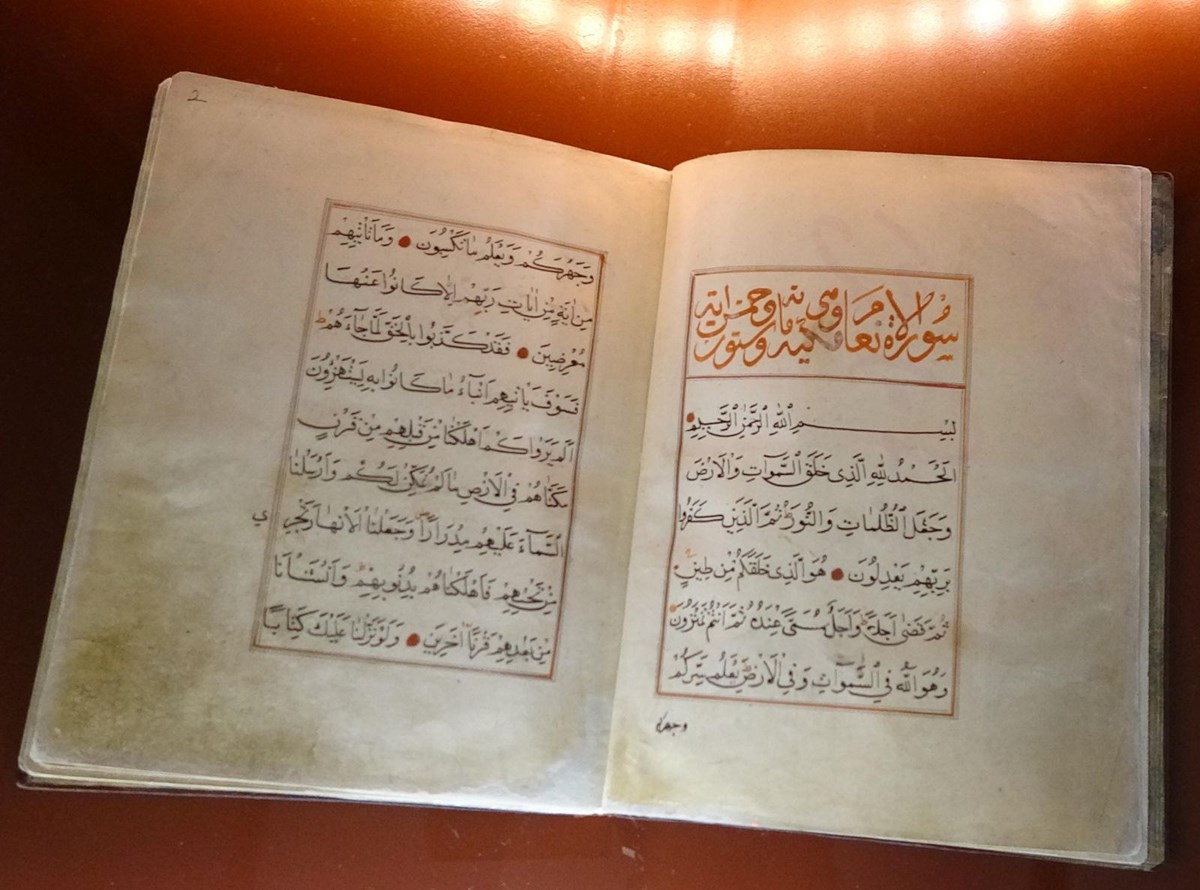 سورة الانعام مكية وهي ماية وخمس وستون اية
بِسْمِ اللّٰهِ الرَّحْمٰنِ الرَّحِيمِ
اَلْحَمْدُ لِلّٰهِ الَّذِى خَلَقَ السَّمٰوَاتِ وَالْاَرْضَ
وَجَعَلَ الظُّلُمَاتِ وَالنُّورَ ط ثُمَّ الَّذِينَ كَفَرُوا
بِرَبِّهِمْ يَعْدِلُونَ هُوَ الَّذِى خَلَقَكُمْ مِنْ طِينٍ
ثُمَّ قَضٰى اَجَلًا ط وَاَجَلٌ مُسَمًّى عِنْدَهُ ثُمَّ اَنْتُمْ تَمْتَرُونَ
وَهُوَ اللّٰهُ فِي السَّمٰوَاتِ وَفِي الْاَرْضِ ط يَعْلَمُ سِرَّكُمْ
وجهركم
2
وَجَهْرَكُمْ وَيَعْلَمُ مَا تَكْسِبُونَ وَمَا تَاْتِيهِمْ
مِنْ اٰيَةٍ مِنْ اٰيَاتِ رَبِّهِمْ اِلَّا كَانُوا عَنْهَا
مُعْرِضِينَ فَقَدْ كَذَّبُوا بِالْحَقِّ لَمَّا جَاءَهُمْ ط
فَسَوْفَ يَاْتِيهِمْ اَنْبَاءُ مَا كَانُوا بِهِ يَسْتَهْزِؤُنَ
اَلَمْ يَرَوْا كَمْ اَهْلَكْنَا مِنْ قَبْلِهِمْ مِنْ قَرْنٍ
مَكَّنَّاهُمْ فِي الْاَرْضِ مَا لَمْ نُمَكِّنْ لَكُمْ وَاَرْسَلْنَا
السَّمَاءَ عَلَيْهِمْ مِدْرَارًا وَجَعَلْنَا الْاَنْهَارَ تَجْرِ
ي
مِنْ تَحْتِهِمْ فَاَهْلَكْنَاهُمْ بِذُنُوبِهِمْ وَاَنْشَأْنَا
مِنْ بَعْدِهِمْ قَرْنًا اٰخَرِينَ وَلَوْ نَزَّلْنَا عَلَيْكَ كِتَابًا